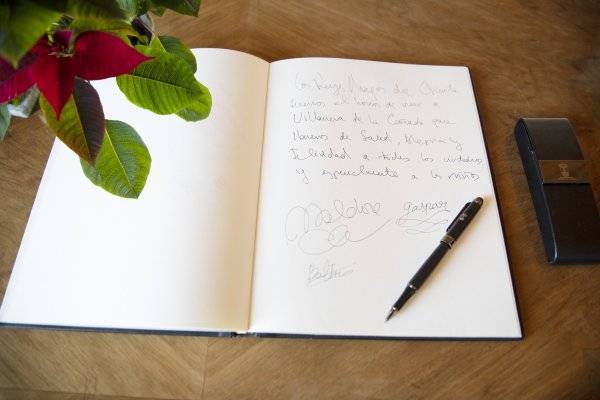 Los Reyes Magos de Oriente
tuvimos el honor de venir a
Villanueva de la Cañada para
llenaros de Salud, Alegría y
Felicidad a todos los ciudadanos
y especialmente a los niños
Melchor gaspar